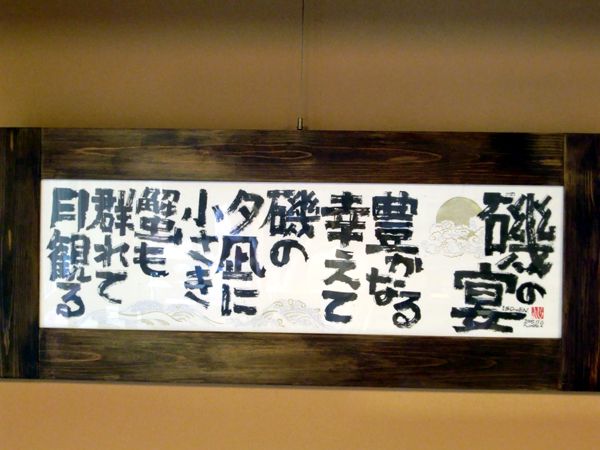 磯の宴
豊かなる
幸えて
磯の
夕凪に
小さき
蟹も
群れて
月観る